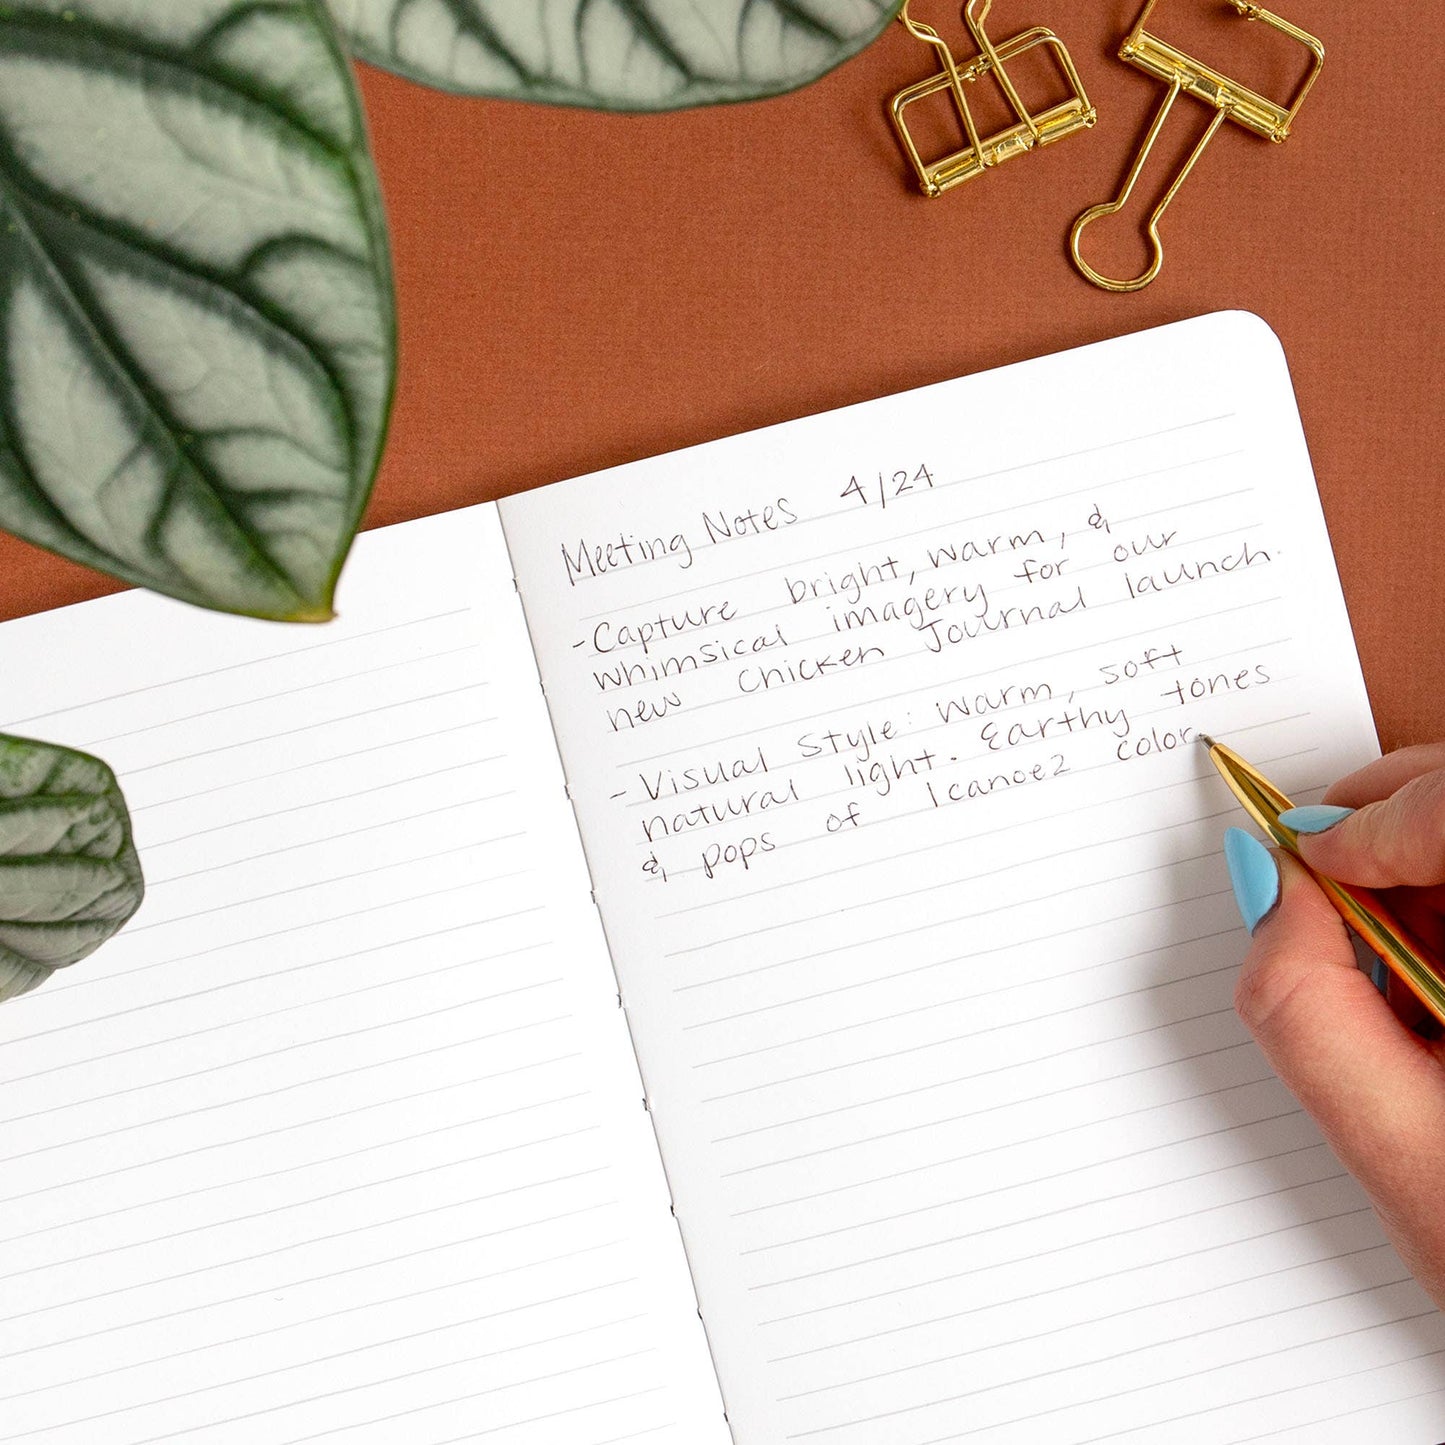 Meeting Notes 4/24
-Capture bright, warm, &
whimsical imagery for our
new Chicken Journal launch.
- Visual Style: warm, soft
natural light. Earthy tones
& pops of 1canoe2 color